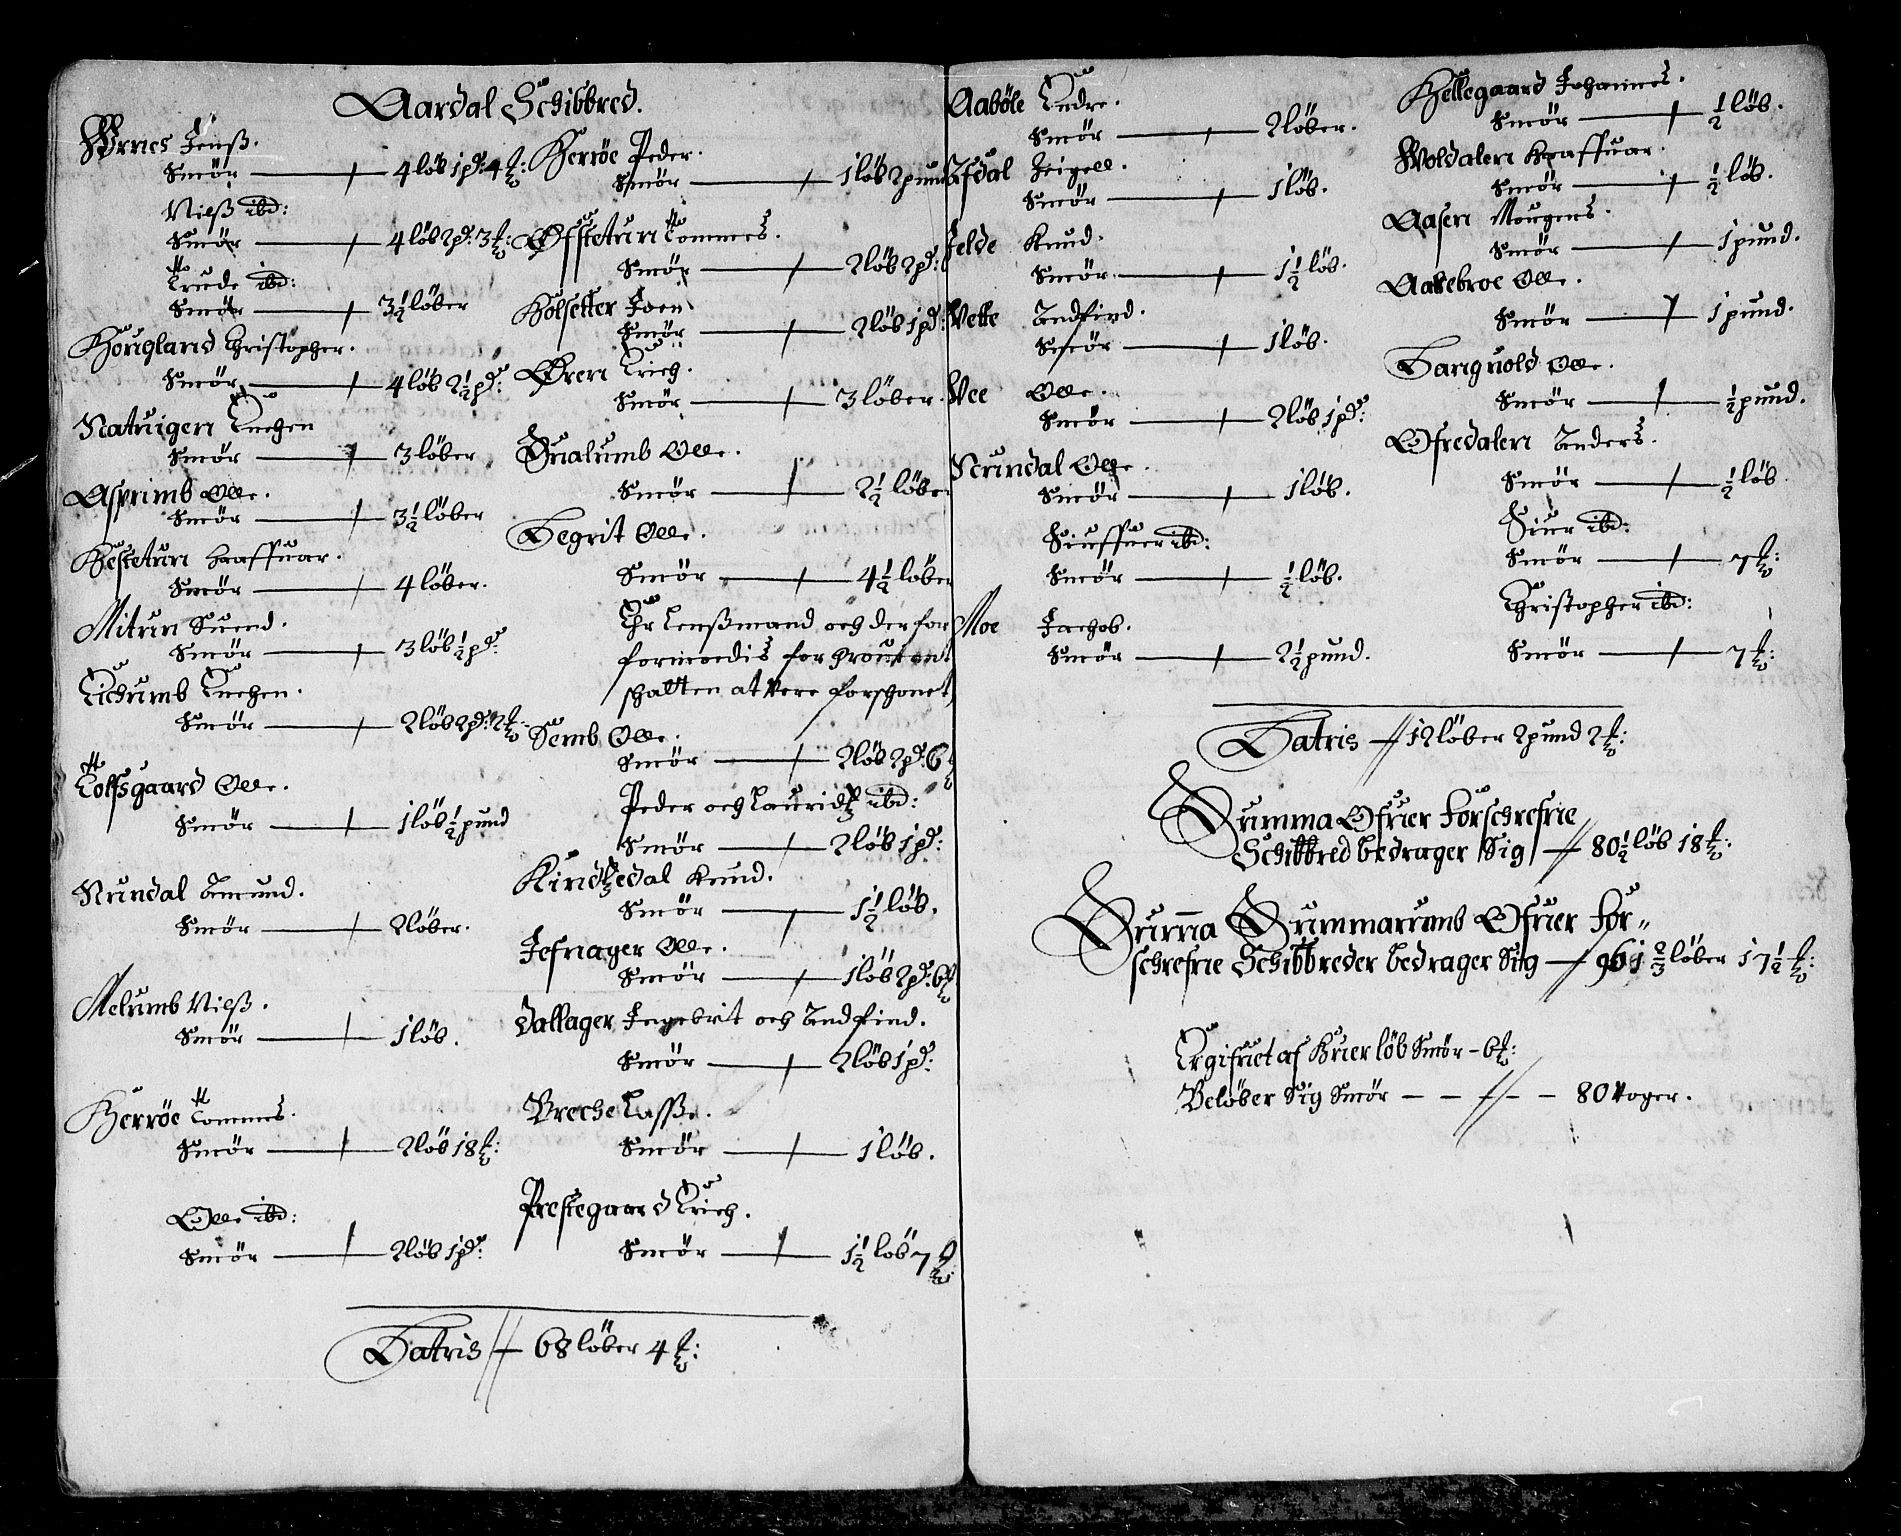 Aardal Schibbred.
Ørnes Jenß.
Smör — 4 löb 1 pd: 4 ℔:
Nielß ibd:
Smör — 4 löb 2 pd: 3 ℔:
Trude ibd:
Smör — 3½ löber
Hougland Christopher.
Smör — 4 löb 2½ pd:
Natuigen
Smör — 3 löber
Asperimb Olle.
Smör — 3½ löber
Hestetun Haaffuar.
Smör — 4 löber.
Mitun Suend.
Smör — 3 löb ½ pd:
Eichumb
Smör — 2 löb 2 pd: 2 ℔:
Toffsgaard Olle.
Smör — 1 löb ½ pund
Nundal Amund.
Smör — 2 löber.
Melumb Nielß.
Smör — 1 löb.
Herröe Tommes.
Smör — 2 löb 18 ℔:
Olle ibd:
Smör — 2 löb 1 pd:
Herröe Peder.
Smör — 1 löb 2 pund
Øffstetun Tommes.
Smör — 2 löb 2 pd:
Holsetter Joen
Smör — 2 löb 1 pd:
Øren Erich.
Smör — 3 löber.
Sualumb Olle.
Smör — 2½ löber
Hegrit Olle.
Smör — 4½ löber
Er Lenßmand och der for
formoedis for
shatten at vere forschonet
Semb Olle.
Smör — 2 löb 2 pd: 6 ℔
Peder och Lauridtz ibd:
Smör — 2 löb 1 pd:
Kindtzedal Knud.
Smör — 1½ löb.
Jefnager Olle.
Smör — 1 löb 2 pd: 6 ℔
Vallager Ingebrit och Andfind.
Smör — 2 löb 1 pd:
Breche Lasße.
Smör — 1 löb.
Prestegaard Erich.
Smör — 1½ löb 7 ℔
Latris — 68 löber 4 ℔:
Aaböle Endre.
Smör — 2 löber.
Afdal
Smör — 1 löb.
Jelde Knud.
Smör — 1½ löb.
Vette Andfind.
Smör — 1 löb.
Vee Olle.
Smör — 2 löb 1 pd:
Nundal Olle.
Smör — 1 löb.
Siuffuer ibd:
Smör — ½ löb.
Moe Jachob.
Smör — 2½ pund.
Hellegaard Johannes.
Smör — ½ löb.
Woldalen Haaffuar.
Smör — ½ löb.
Aasen Mougens.
Smör — 1 pund.
Aakebroe Olle.
Smör — 1 pund.
Langnold Olle.
Smör — ½ pund.
Ofredalen Anders.
Smör — ½ löb
Siuer ibd:
Smör — 7 ℔:
Christopher ibd:
Smör — 7 ℔:
Latris — 12 löber 2 pund 2 ℔:
Summa Ofuer Forschrefne
Schibbred bedrager Sig — 80½ löb 18 ℔:
Summa Summarumb Ofuer For„
schrefne Schibbreder bedrager Sig — 961⅔ löber 17½ ℔:
Ergifuet af huer löb Smör – 6 ℔:
Belöber Sig Smör — 80 voger.